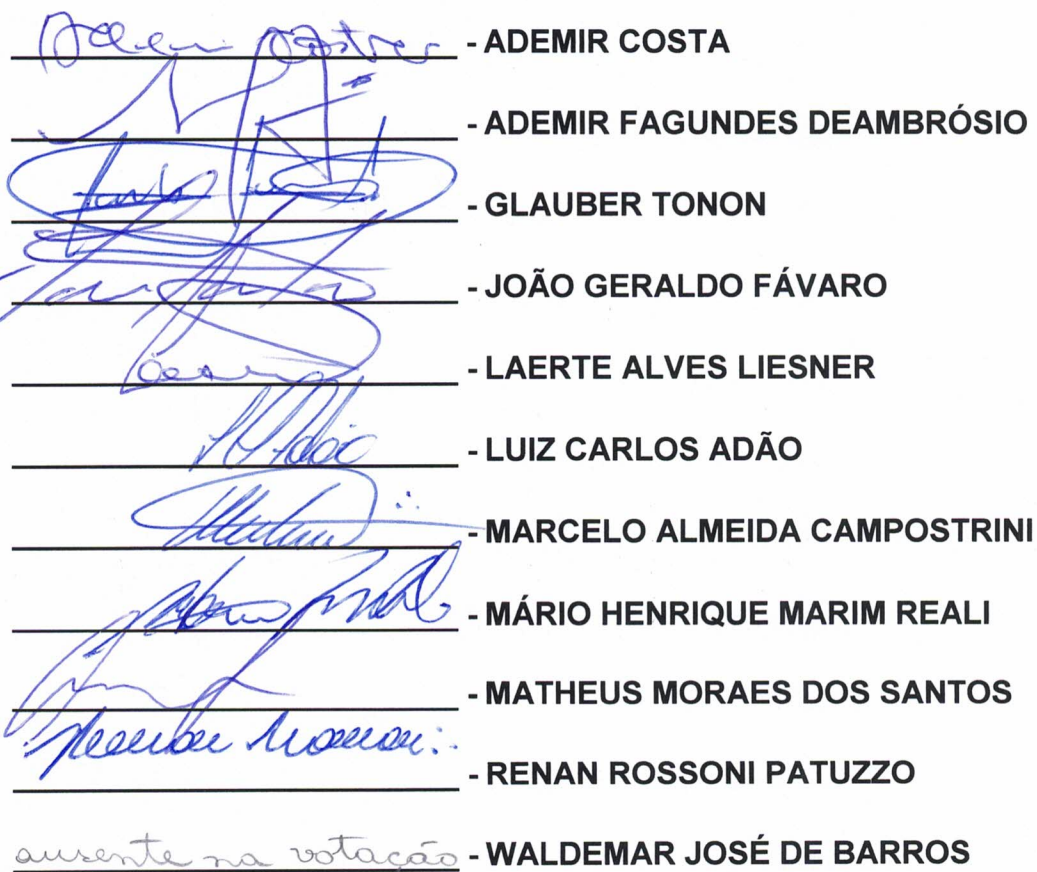 Ademir Costa - ADEMIR COSTA
- ADEMIR FAGUNDES DEAMBRÓSIO
- GLAUBER TONON
- JOÃO GERALDO FÁVARO
- LAERTE ALVES LIESNER
Adão - LUIZ CARLOS ADÃO
- MARCELO ALMEIDA CAMPOSTRINI
- MÁRIO HENRIQUE MARIM REALI
- MATHEUS MORAES DOS SANTOS
- RENAN ROSSONI PATUZZO
ausente na votação - WALDEMAR JOSÉ DE BARROS